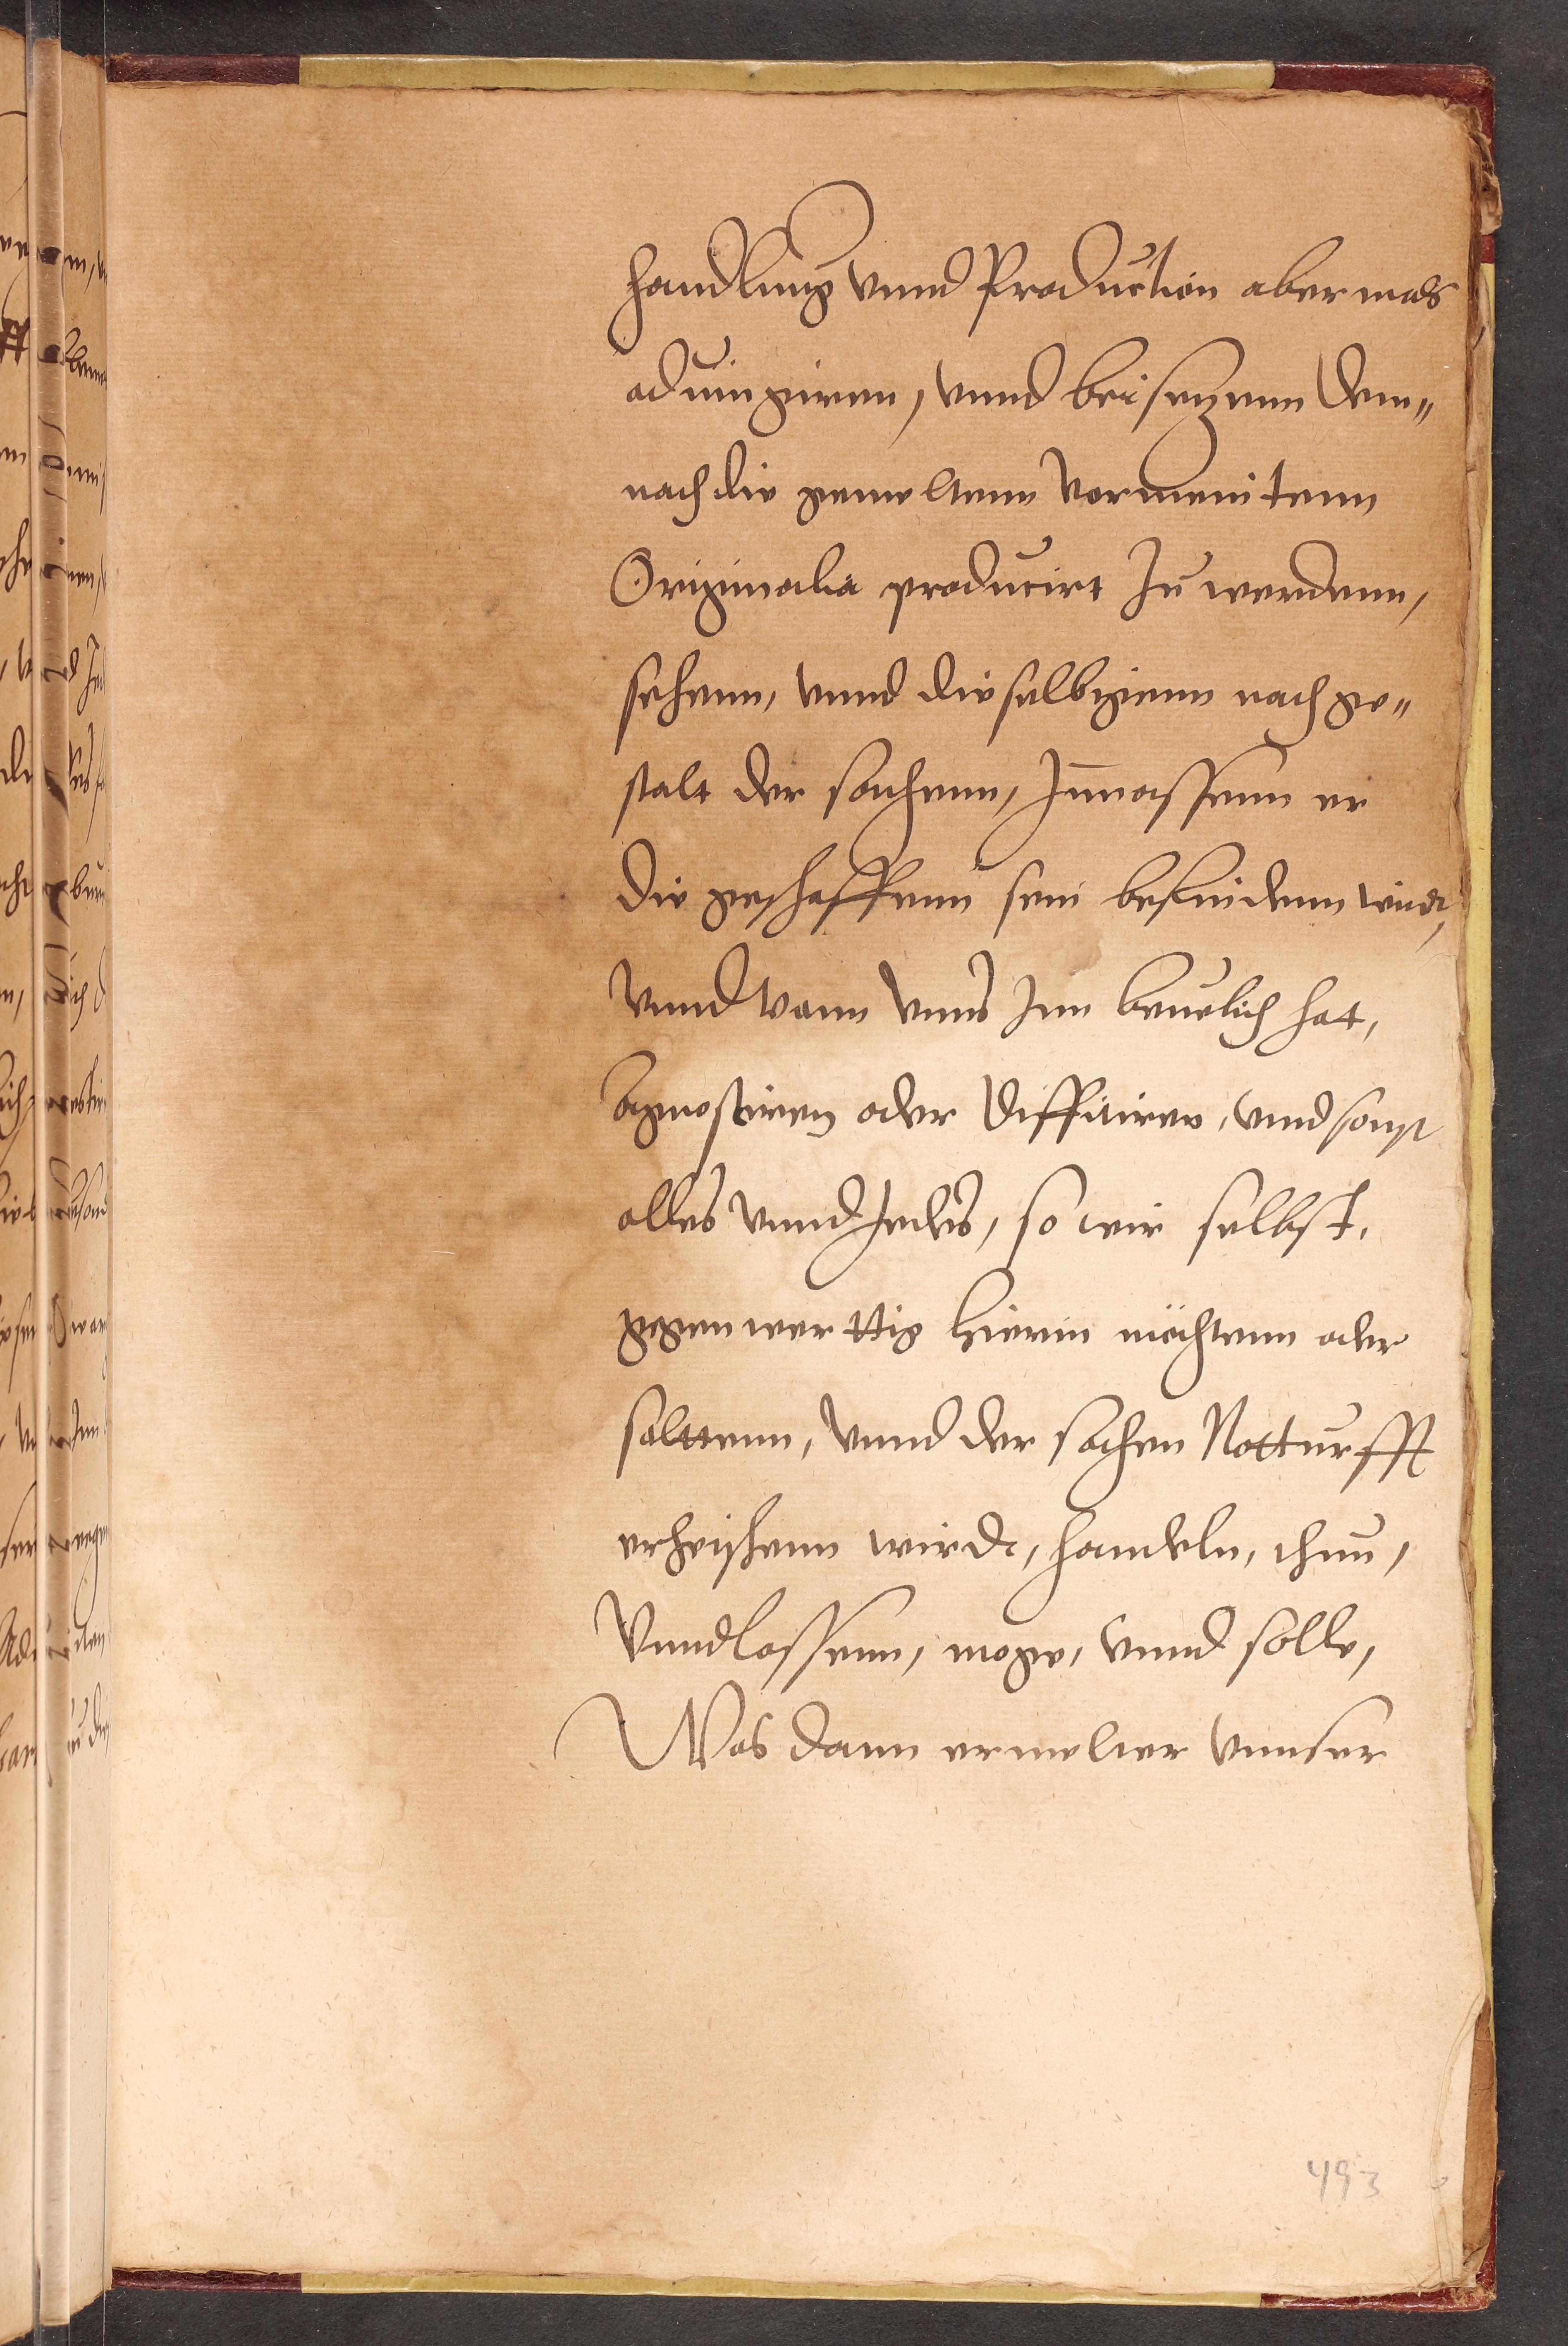 handlung vnnd Production abermals
adiungiren, vnnd bei setzenn dem„
nach die gemeltenn vermeintenn
Originalia producirt zu werdenn,
sehenn, vnnd dieselbigenn nach ge„
stalt der sachenn, Inmassenn er
die geschaffenn sein befindenn wirdt,
vnnd vonn vnns Inn beuelich hat,
agnosciren oder diffitiren, vnnd sonst
alles vnnd Jedes, so wir selbst,
gegenwerttig hierin möchtenn oder
soltenn, vnnd der sachen Notturfft
erheischenn wirdt, handeln, thun,
vnnd lassenn, moge, vnnd solle,
Was dann ermelter vnnser
493